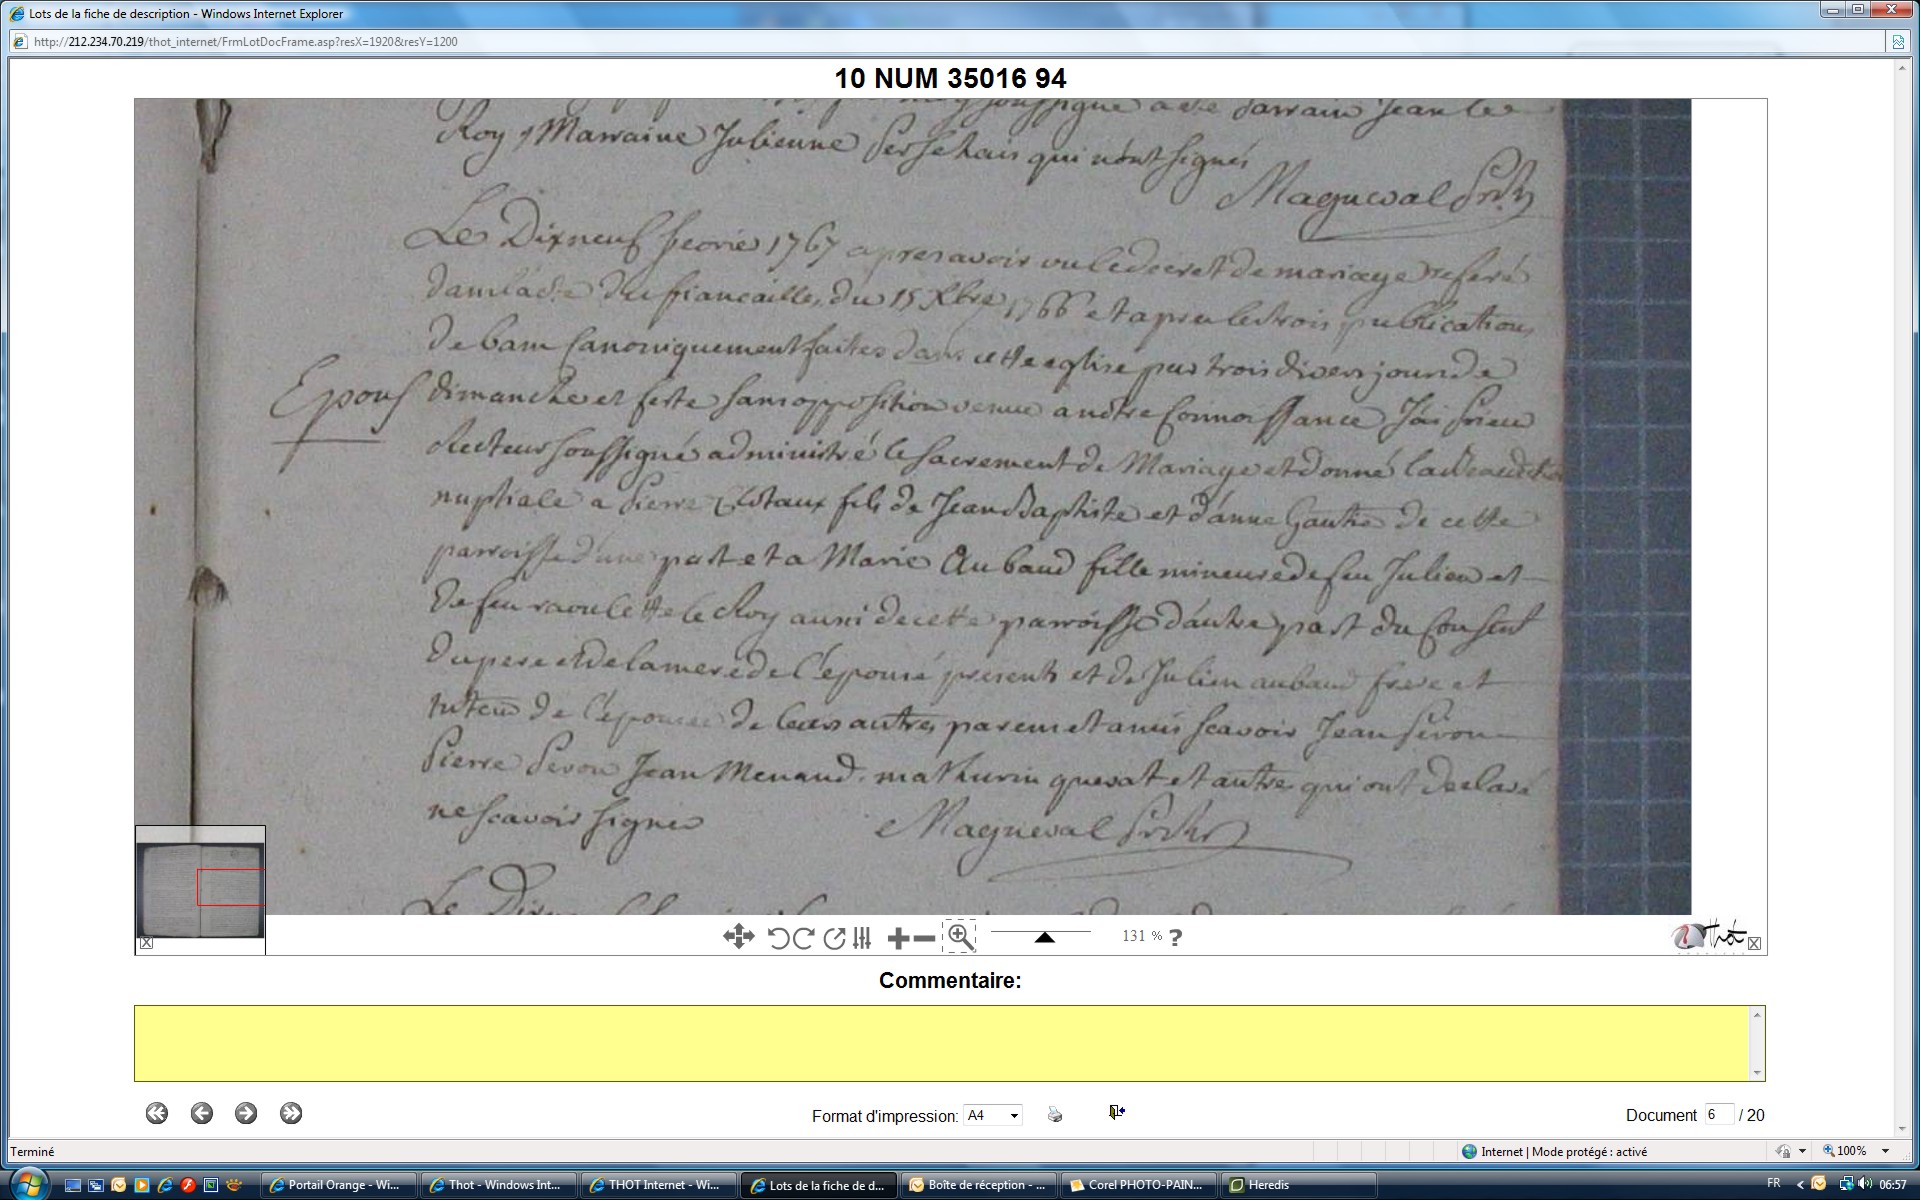 Lots de la fiche de description - Windows Internet Explorer
http://212.234.70.219/thot_internet/FrmLotDocFrame.asp?resX=1920&resY=1200
10 NUM 35016 94
soussigné a été Parrain Jean le
Roy & Marraine Julienne qui n'ont signés
Magueval
Le Dixneuf fevrie 1767 apres avoir vu le decret de mariage referé
dans l'acte de fiancailles, du 15 Xbre 1766 et apres les trois publications
de bans Canoniquement faites dans cette eglise par trois divers jours de
Epous
dimanche et feste sans opposition venue a notre Connoissance J'ai Prieur
Recteur soussigné administré le sacrement de Mariage et donné la Benediction
nuptiale a Pierre fils de Jean Baptiste et d'anne Gautie de cette
parroisse d'une part et a Marie Aubaud fille mineure de feu Julien et
de feu raoulette le Roy aussi de cette parroisse d'autre part du Consent
du pere et de la mere de l'epousé presents et de Julien aubaud frere et
tuteur de l'epousée de leurs autres parens et amis scavoir Jean
Pierre Jean Menaud, mathurin et autres qui ont declaré
ne scavoir signer
Magueval
Le
131 %
?
Thot
Commentaire:
Format d'impression: A4
Document 6 / 20
Terminé
Internet | Mode protégé : activé
100%
Portail Orange - Wi...
Thot - Windows Int...
THOT Internet - Wi...
Lots de la fiche de d...
Boîte de réception - ...
Corel PHOTO-PAIN...
Heredis
FR
06:57